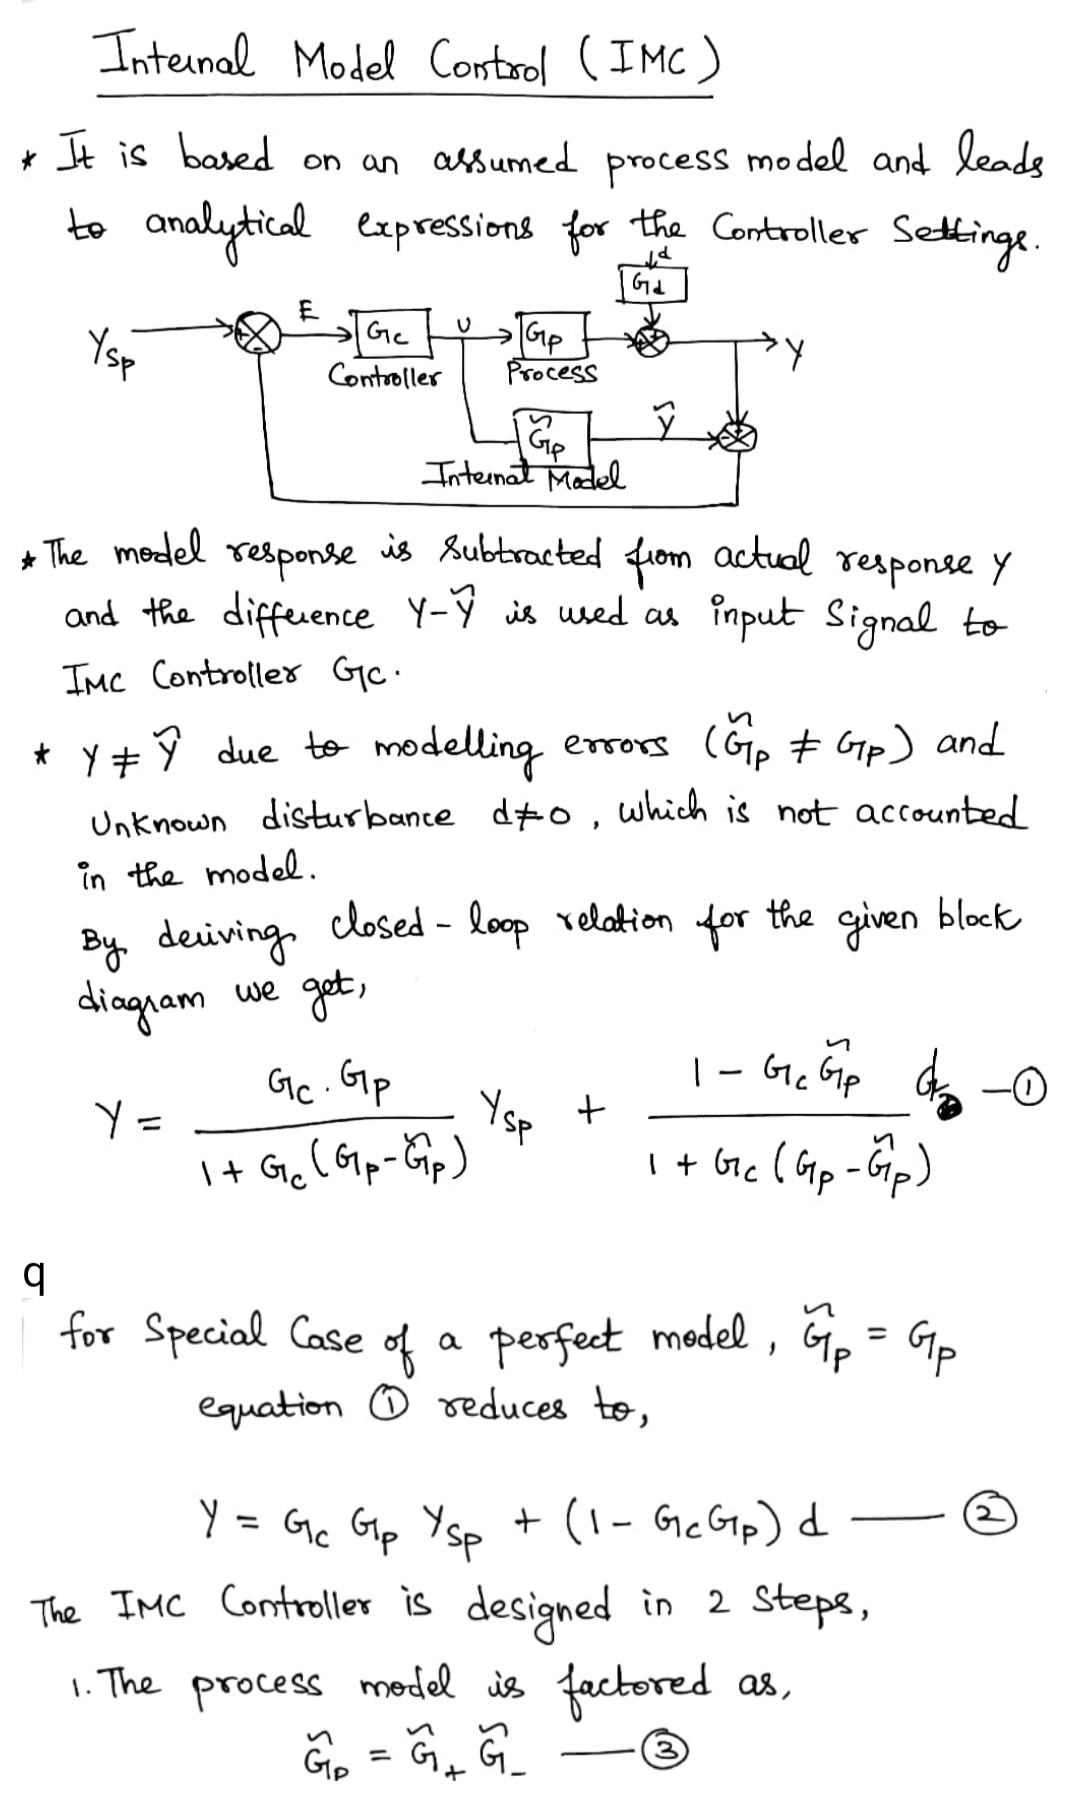 Internal Model Control (IMC)
* It is based on an assumed process model and leads
to analytical expressions for the Controller Settings.
d
Gd
Ysp E Gc U Gp Y
Controller Process
G̃p Ỹ
Internal Model
* The model response is subtracted from actual response Y
and the difference Y-Ỹ is used as input Signal to
IMC Controller Gc.
* Y ≠ Ỹ due to modelling errors (G̃p ≠ Gp) and
Unknown disturbance d≠0, which is not accounted
in the model.
By deriving closed-loop relation for the given block
diagram we get,
Y = Gc.Gp / 1 + Gc(Gp-G̃p) Ysp + 1 - Gc G̃p / 1 + Gc (Gp-G̃p) d —①
q
for Special Case of a perfect model, G̃p = Gp
equation ① reduces to,
Y = Gc Gp Ysp + (1 - GcGp) d —②
The IMC Controller is designed in 2 Steps,
1. The process model is factored as,
G̃p = G̃+ G̃- —③